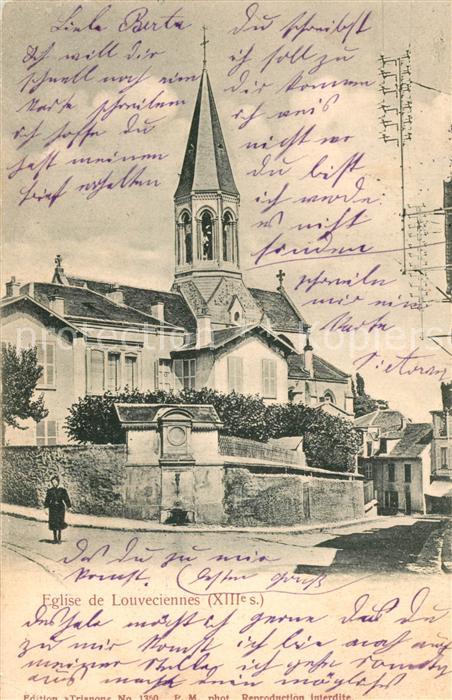 Liebe Berta
ich will dir
schnell noch eine
Karte schreiben
ich hoffe du
hast meinen
brief erhalten
Du schreibst
ich soll zu
dir kommen
ich weis
nicht wo
du bist
ich werde
es nicht
finden
schreib
mir eine
Karte
Victoria
das Du zu mir
kommst
besten gruß
Eglise de Louveciennes (XIIIe s.)
möcht ich gerne das Du
zu mir komst ich bin noch auf
meiner Stelle ich gehe
aus
Edition »Trianon« No. 1350. P. M. phot. Reproduction interdite.